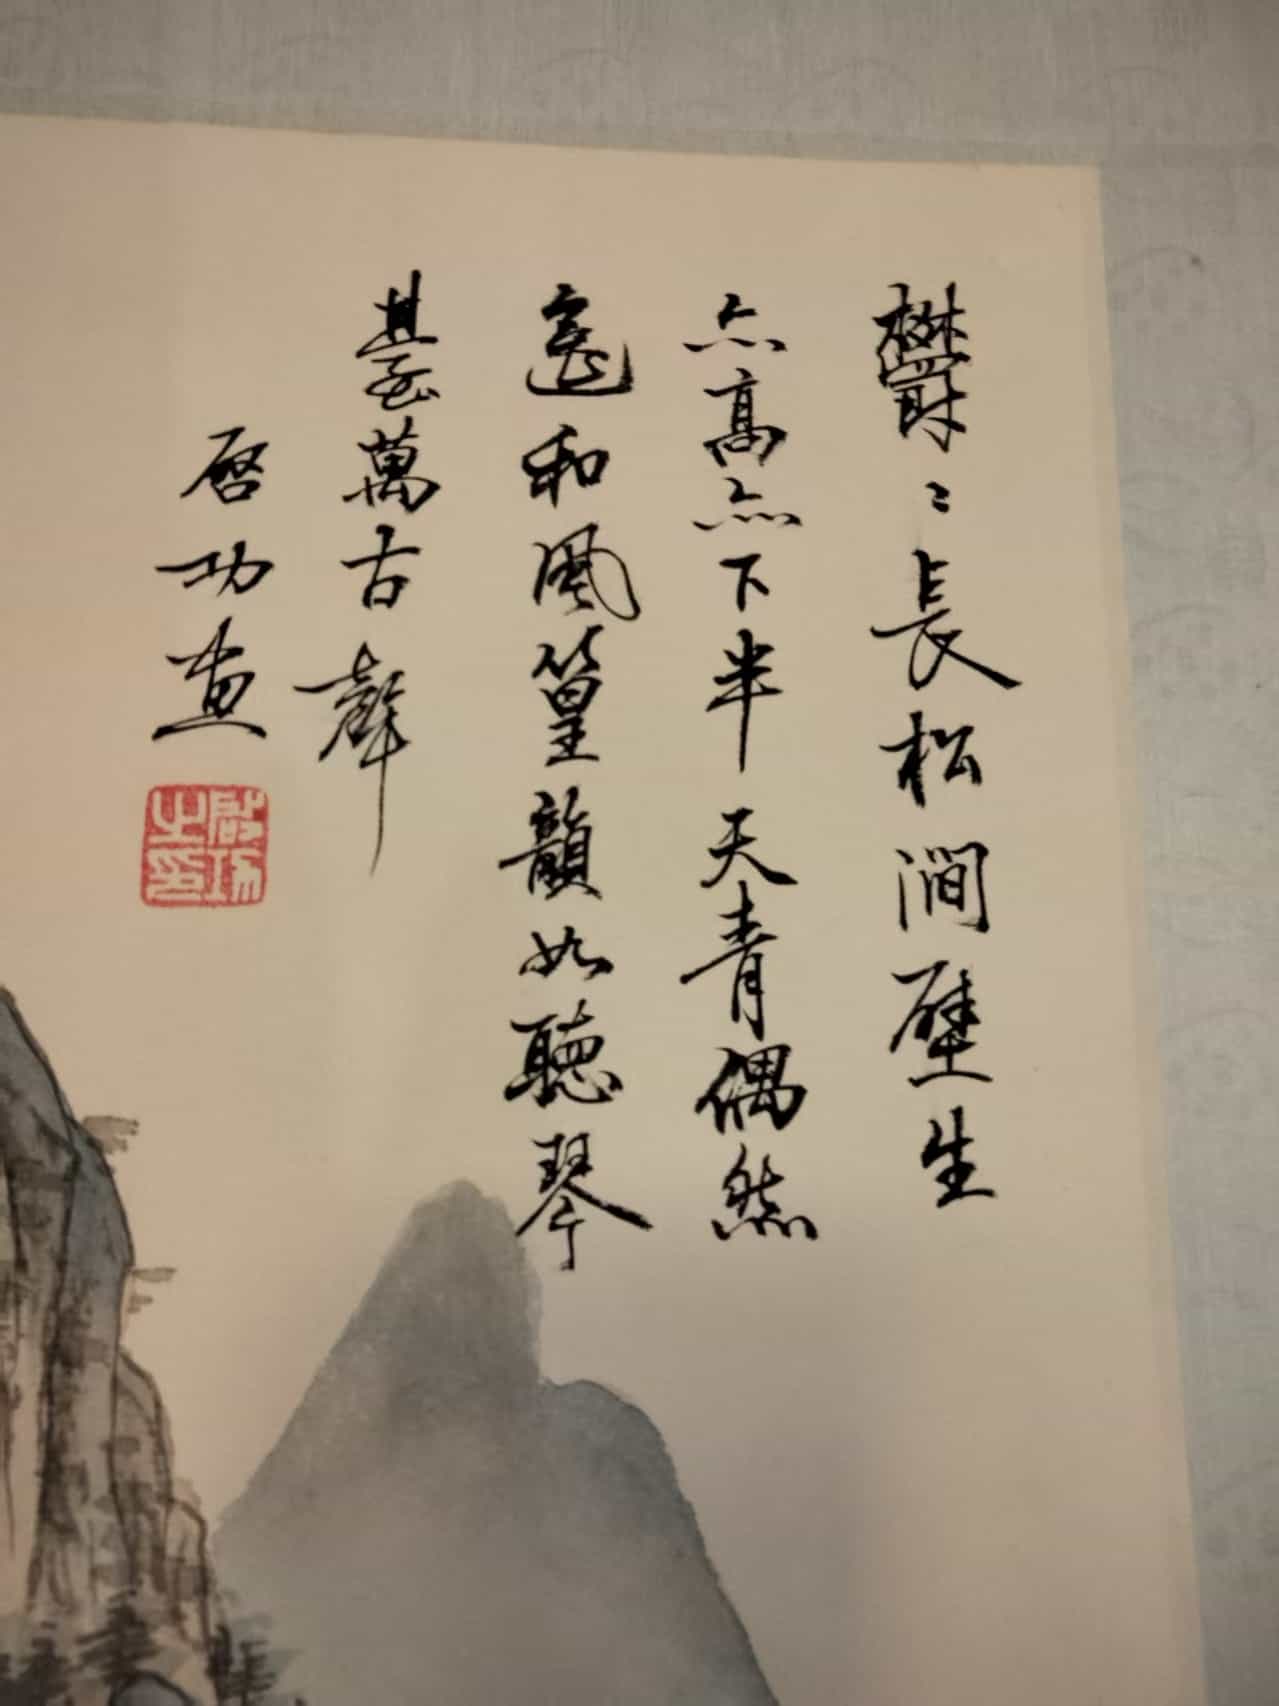 鬱〻長松澗壁生
亦高亦下半天青偶然
遙和風篁韻如聽琴
臺萬古聲
啓功畫
啟功之印